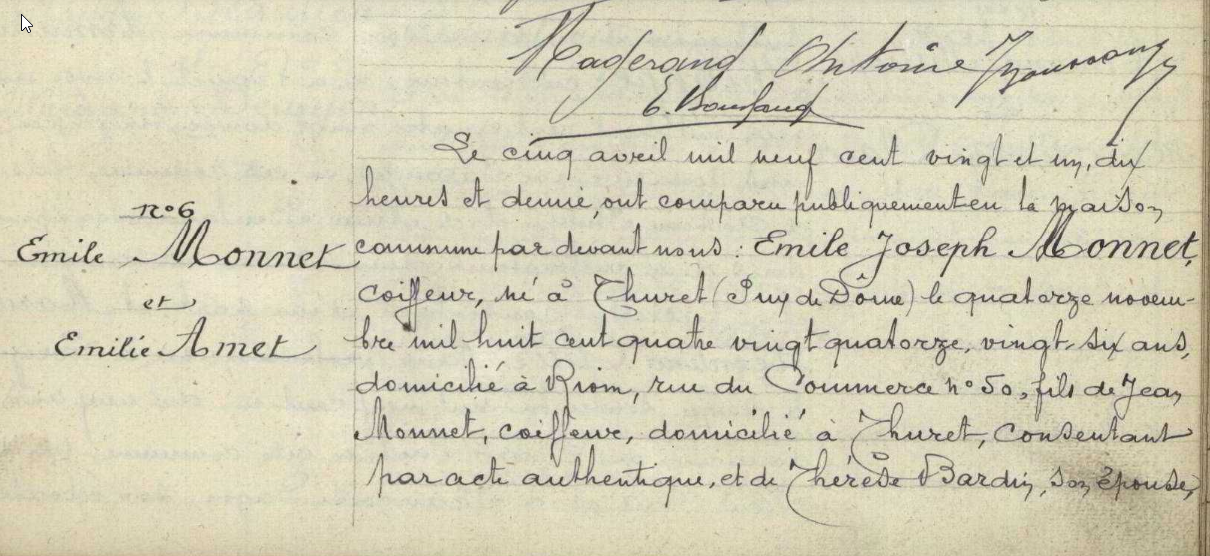 Antoine
Le cinq avril mil neuf cent vingt et un, dix
heures et demie, ont comparu publiquement en la maison
n°6
Emile Monnet
et
Emilie Amet
commune par devant nous : Emile Joseph Monnet,
coiffeur, né à Thuret (Puy de Dôme) le quatorze novem-
bre mil huit cent quatre vingt quatorze, vingt-six ans,
domicilié à Riom, rue du Commerce n° 50, fils de Jean
Monnet, coiffeur, domicilié à Thuret, consentant
par acte authentique, et de Thérèse Bardin, son épouse,